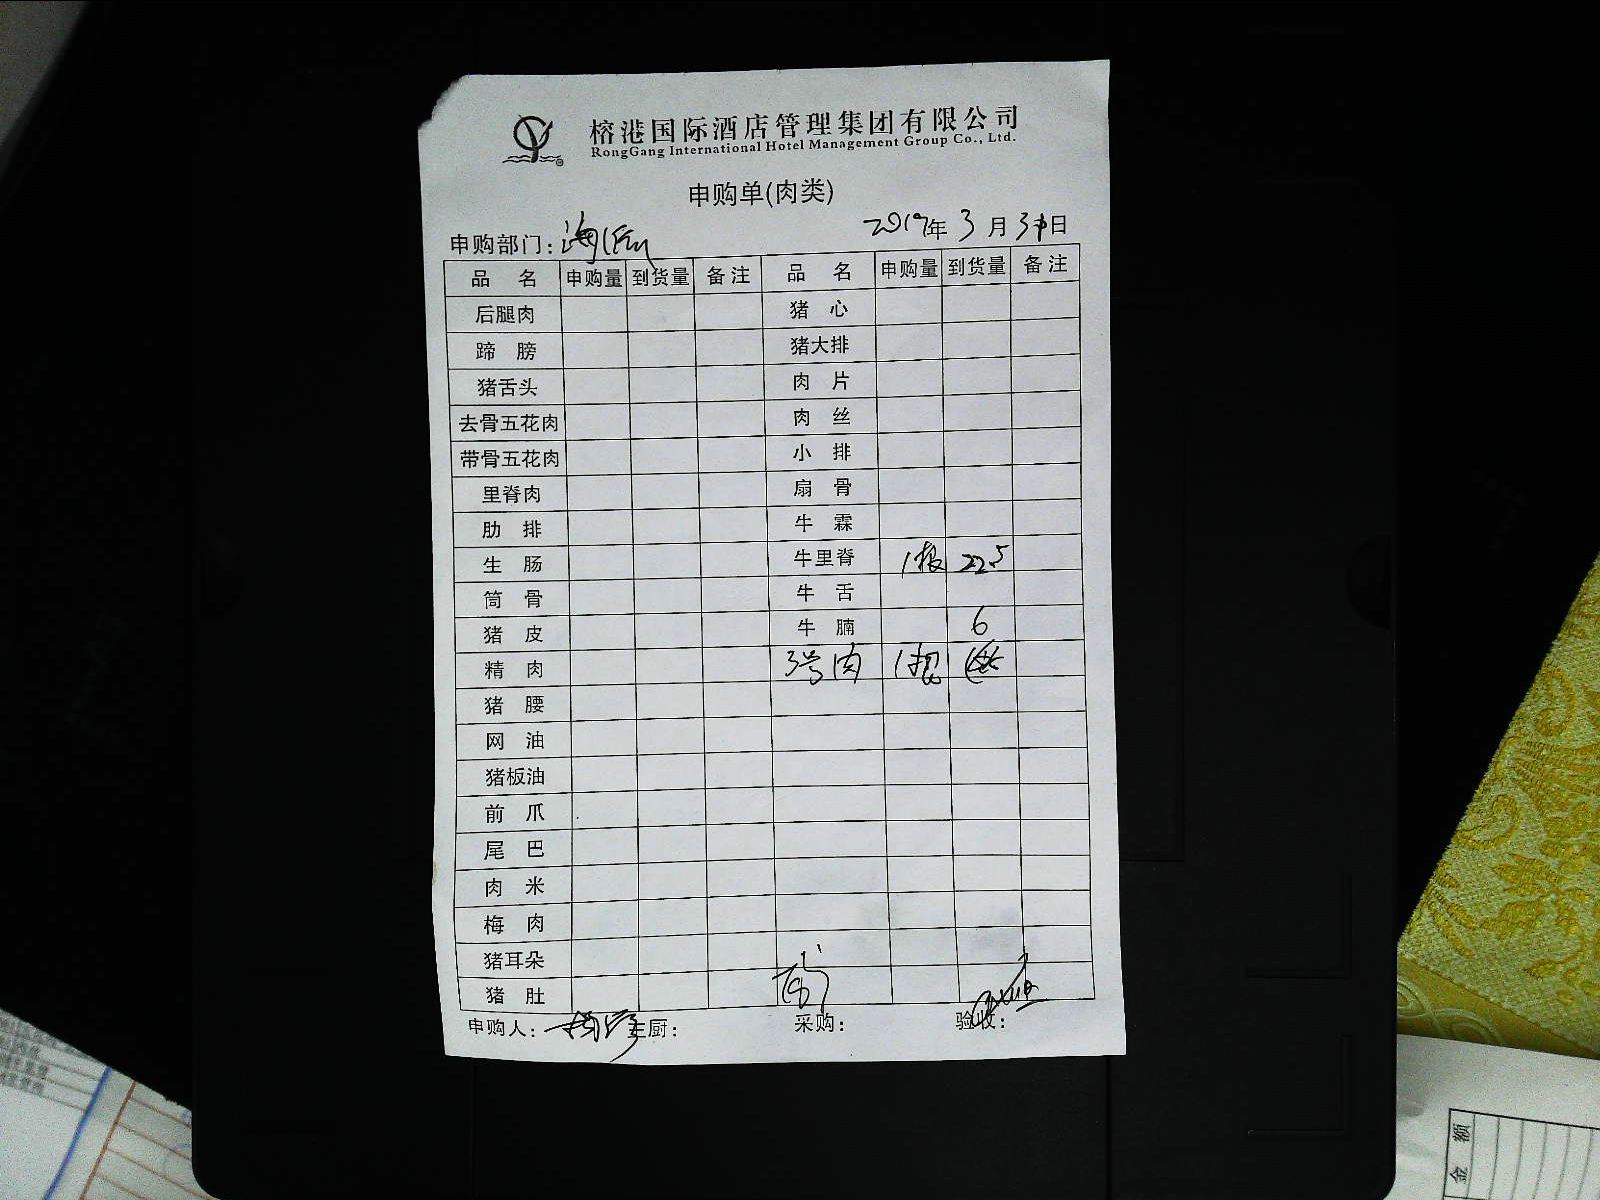 榕港国际酒店管理集团有限公司
RongGang International Hotel Management Group Co., Ltd.
申购单(肉类)
申购部门:
2019年 3月 31日
品 名 申购量 到货量 备注 品 名 申购量 到货量 备注
后腿肉 猪 心
蹄 膀 猪大排
猪舌头 肉 片
去骨五花肉 肉 丝
带骨五花肉 小 排
里脊肉 扇 骨
肋 排 牛 霖
生 肠 牛里脊 1根 22.5
筒 骨 牛 舌
猪 皮 牛 腩 6
精 肉 3号肉 1把
猪 腰
网 油
猪板油
前 爪
尾 巴
肉 米
梅 肉
猪耳朵
猪 肚
申购人: 主厨: 采购: 验收:
金 额